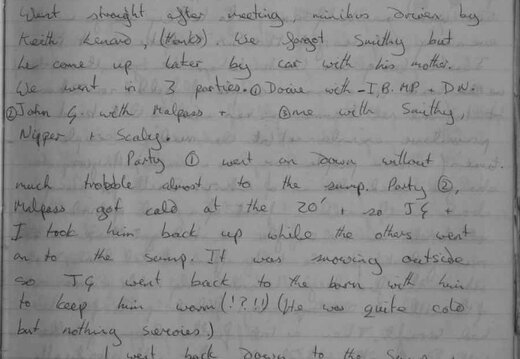 Went straight after meeting, minibus driven by
Keith Lenard, (thanks). We forgot Smithy but
he come up later by car with his mother.
We went in 3 parties. ① Dorive with - I.B. MP + D.N.
② John G. with Malpass + ③ me with Smithy,
Nipper + Scaley.
Party ① went on down without
much trobble almost to the sump. Party ②,
Malpass got cold at the 20' + so JG +
I took him back up while the others went
on to the sump. It was snowing outside
so JG went back to the barn with him
to keep him warm (!?!!) (He was quite cold
but nothing serious.)
I went back down to the